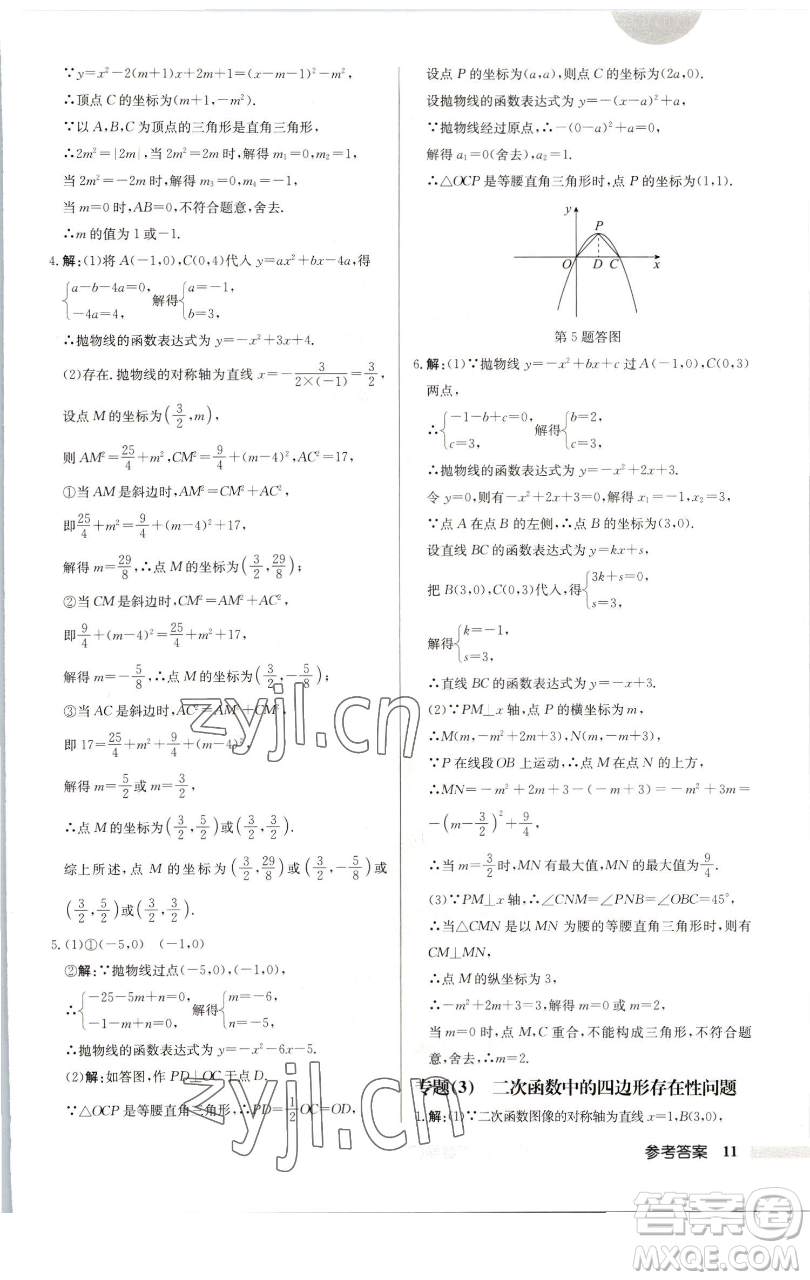 ∵y=x²-2(m+1)x+2m+1=(x-m-1)²-m²,
∴顶点 C 的坐标为(m+1,-m²).
∵以 A,B,C 为顶点的三角形是直角三角形,
∴2m²=|2m|,当 2m²=2m 时,解得 m₁=0,m₂=1,
当 2m²=-2m 时,解得 m₃=0,m₄=-1,
当 m=0 时,AB=0,不符合题意,舍去.
∴m 的值为 1 或-1.
4.解:(1)将 A(-1,0),C(0,4)代入 y=ax²+bx-4a,得
{a-b-4a=0, -4a=4, 解得{a=-1, b=3,
∴抛物线的函数表达式为 y=-x²+3x+4.
(2)存在.抛物线的对称轴为直线 x=-3/(2×(-1))=3/2,
设点 M 的坐标为(3/2,m),
则 AM²=25/4+m²,CM²=9/4+(m-4)²,AC²=17,
①当 AM 是斜边时,AM²=CM²+AC²,
即25/4+m²=9/4+(m-4)²+17,
解得 m=29/8,∴点 M 的坐标为(3/2,29/8);
②当 CM 是斜边时,CM²=AM²+AC²,
即9/4+(m-4)²=25/4+m²+17,
解得 m=-5/8,∴点 M 的坐标为(3/2,-5/8);
③当 AC 是斜边时,AC²=AM²+CM²,
即 17=25/4+m²+9/4+(m-4)²,
解得 m=5/2或 m=3/2,
∴点 M 的坐标为(3/2,5/2)或(3/2,3/2).
综上所述,点 M 的坐标为(3/2,29/8)或(3/2,-5/8)或
(3/2,5/2)或(3/2,3/2).
5.(1)①(-5,0) (-1,0)
②解:∵抛物线过点(-5,0),(-1,0),
∴{-25-5m+n=0, -1-m+n=0, 解得{m=-6, n=-5,
∴抛物线的函数表达式为 y=-x²-6x-5.
(2)解:如答图,作 PD⊥OC 于点 D,
∵△OCP 是等腰直角三角形,∴PD=1/2OC=OD,
设点 P 的坐标为(a,a),则点 C 的坐标为(2a,0).
设抛物线的函数表达式为 y=-(x-a)²+a,
∵抛物线经过原点,∴-(0-a)²+a=0,
解得 a₁=0(舍去),a₂=1.
∴△OCP 是等腰直角三角形时,点 P 的坐标为(1,1).
y
P
O D C x
第 5 题答图
6.解:(1)∵抛物线 y=-x²+bx+c 过 A(-1,0),C(0,3)
两点,
∴{-1-b+c=0, c=3, 解得{b=2, c=3,
∴抛物线的函数表达式为 y=-x²+2x+3.
令 y=0,则有-x²+2x+3=0,解得 x₁=-1,x₂=3,
∵点 A 在点 B 的左侧,∴点 B 的坐标为(3,0).
设直线 BC 的函数表达式为 y=kx+s,
把 B(3,0),C(0,3)代入,得{3k+s=0, s=3,
解得{k=-1, s=3,
∴直线 BC 的函数表达式为 y=-x+3.
(2)∵PM⊥x 轴,点 P 的横坐标为 m,
∴M(m,-m²+2m+3),N(m,-m+3),
∵P 在线段 OB 上运动,∴点 M 在点 N 的上方,
∴MN=-m²+2m+3-(-m+3)=-m²+3m=
-(m-3/2)²+9/4,
∴当 m=3/2时,MN 有最大值,MN 的最大值为9/4.
(3)∵PM⊥x 轴,∴∠CNM=∠PNB=∠OBC=45°,
∴当△CMN 是以 MN 为腰的等腰直角三角形时,则有
CM⊥MN,
∴点 M 的纵坐标为 3,
∴-m²+2m+3=3,解得 m=0 或 m=2,
当 m=0 时,点 M,C 重合,不能构成三角形,不符合题
意,舍去,∴m=2.
专题(3) 二次函数中的四边形存在性问题
1.解:(1)∵二次函数图像的对称轴为直线 x=1,B(3,0),
参考答案 11
zyjl.cn
zyjl.cn
答案圈
MXQE.COM